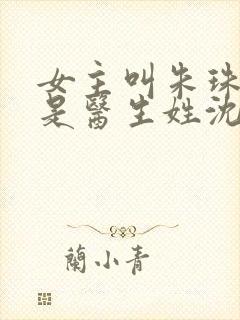 女主叫朱珠
是醫生姓沈
蘭小青